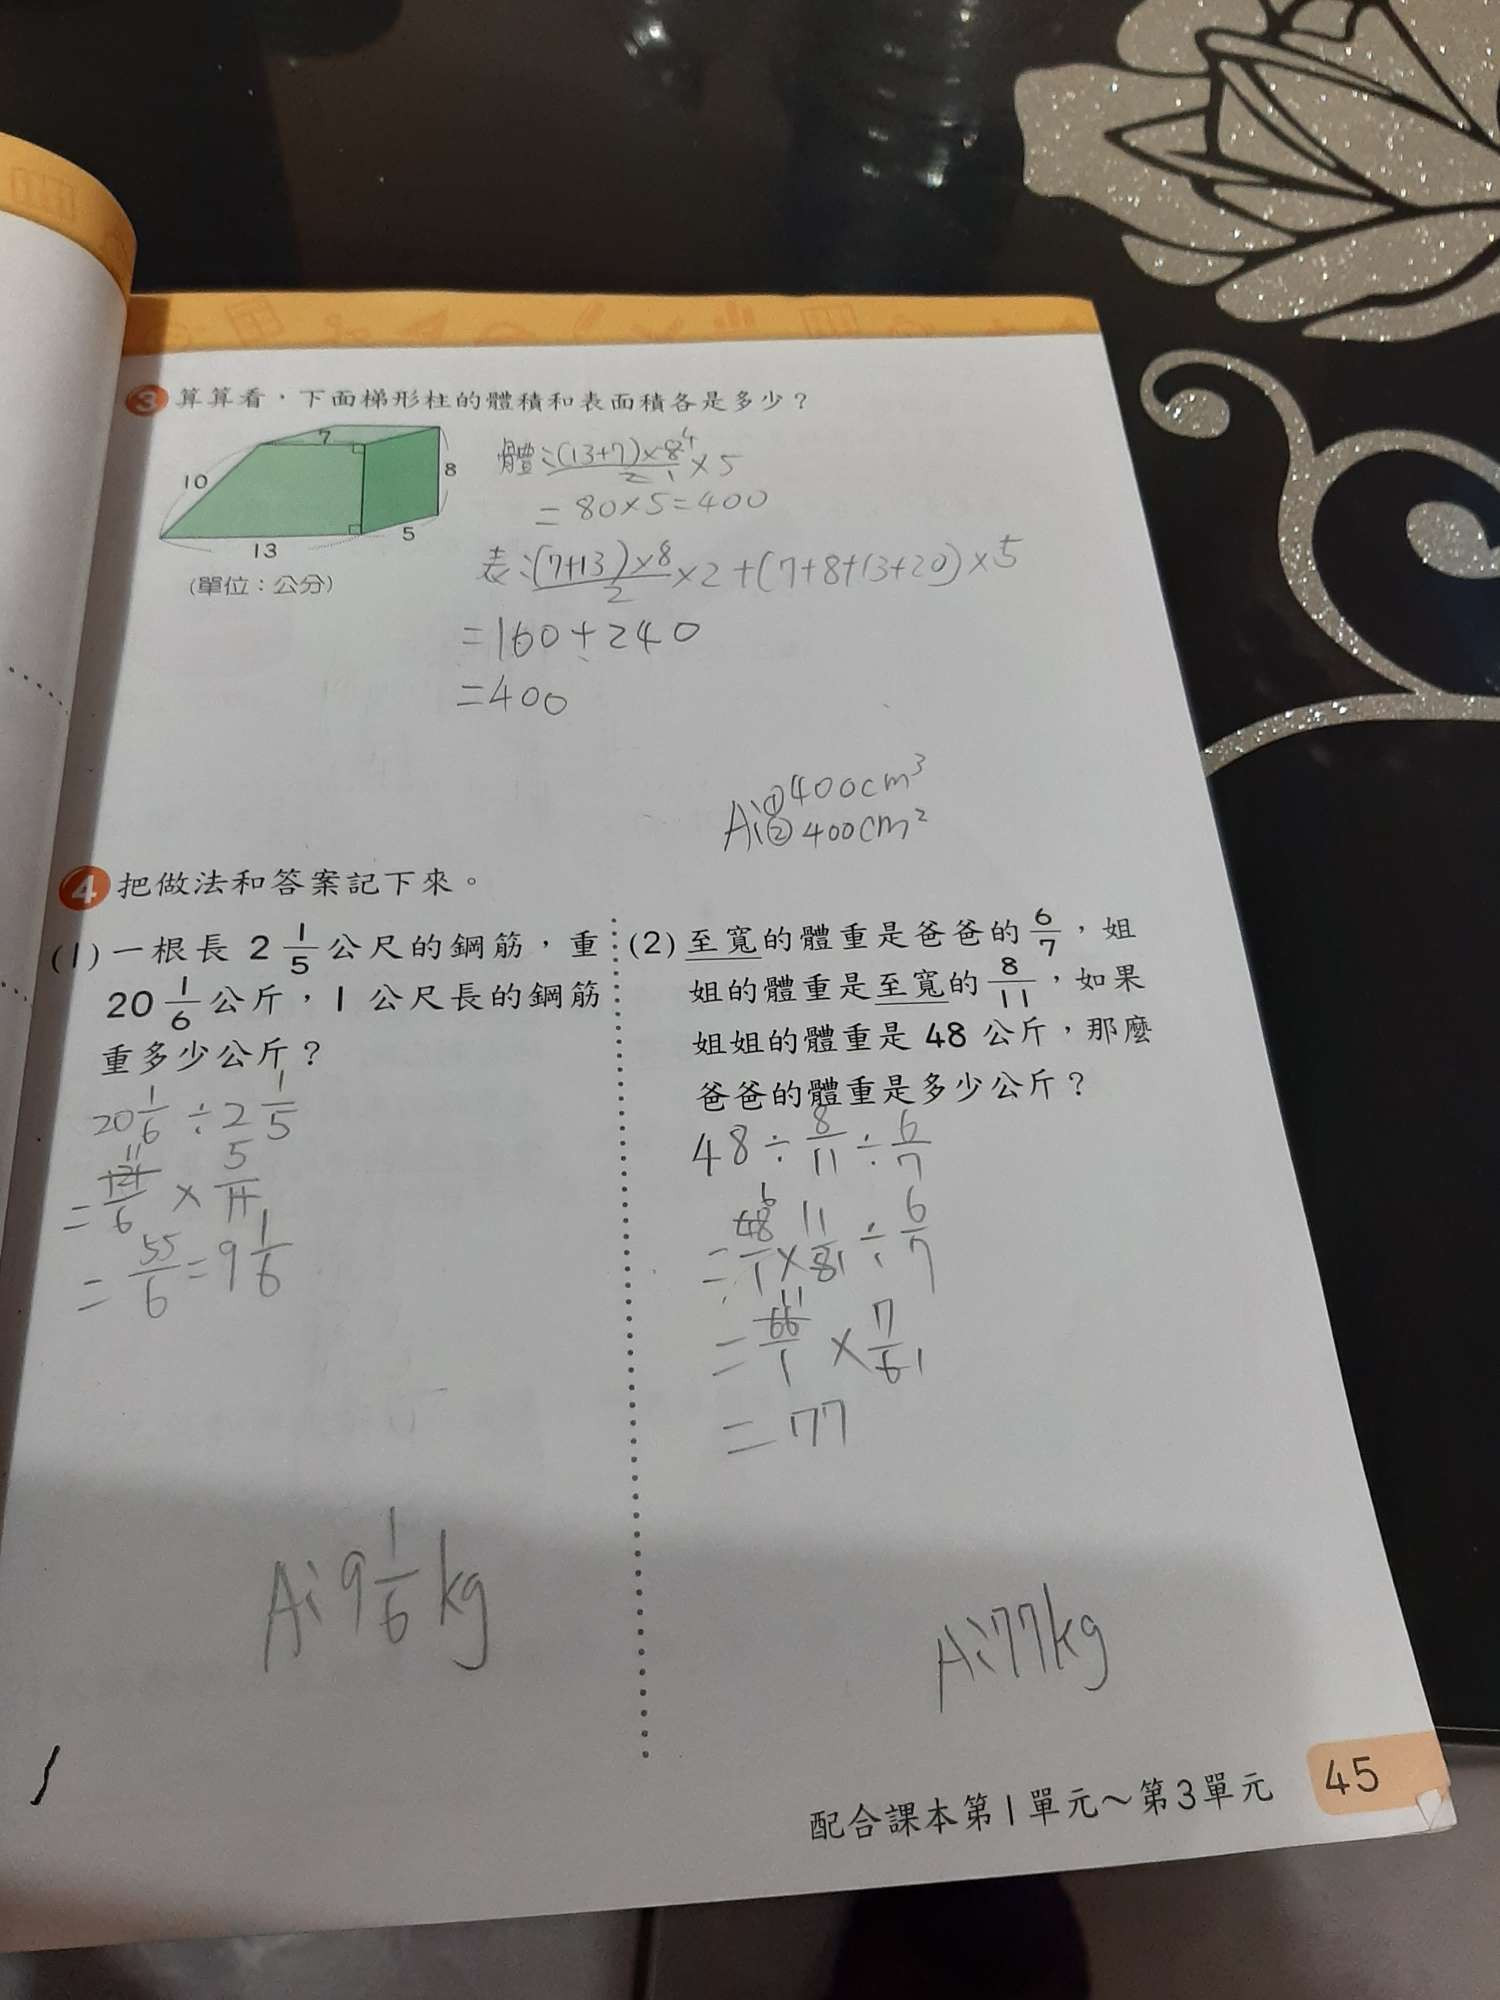 3 算算看，下面梯形柱的體積和表面積各是多少？
7
10
8
5
13
(單位：公分)
體：(13+7)×8⁴/2 1 ×5
=80×5=400
表：(7+13)×8/2 ×2+(7+8+13+20)×5
=160+240
=400
A：①400cm³
②400cm²
4 把做法和答案記下來。
(1) 一根長 2 1/5 公尺的鋼筋，重
20 1/6 公斤，1 公尺長的鋼筋
重多少公斤？
20 1/6 ÷2 1/5
= 11 121/6 × 5/11
= 55/6 =9 1/6
A：9 1/6 kg
(2) 至寬的體重是爸爸的 6/7，姐
姐的體重是至寬的 8/11，如果
姐姐的體重是 48 公斤，那麼
爸爸的體重是多少公斤？
48÷ 8/11 ÷ 6/7
= 6 48/1 × 11/8 1 ÷ 6/7
= 11 66/1 × 7/6 1
=77
A：77kg
配合課本第1單元～第3單元
45